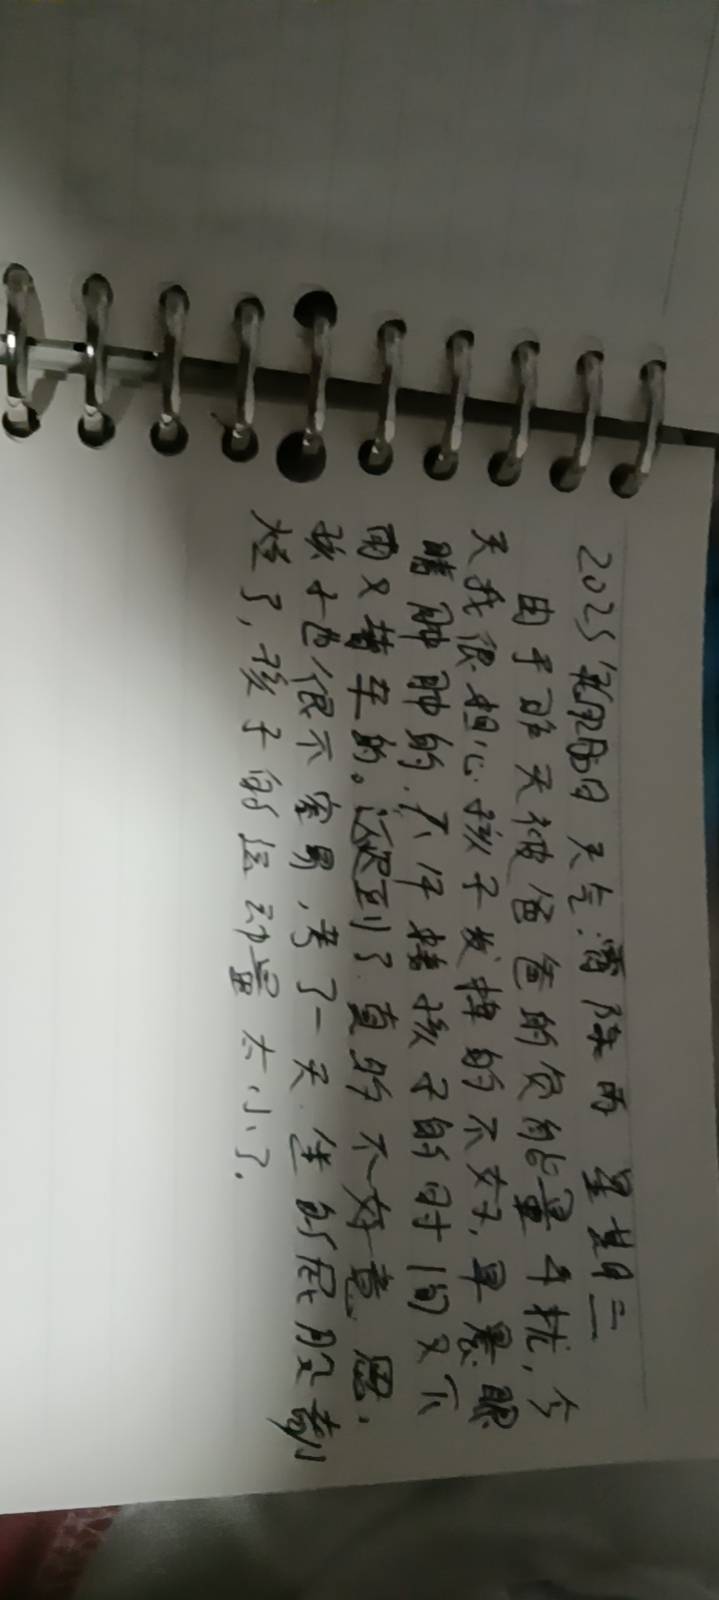 2025年 日 天气:雷阵雨 星期二
由于昨天被爸爸的负能量干扰,今
天我很担心孩子发挥的不好,早晨眼
睛肿肿的.下午接孩子的时间又下
雨又堵车的。还迟到了.真的不好意思,
孩子也很不容易,考了一天.坐的屁股都
大了,孩子的运动量太小了.